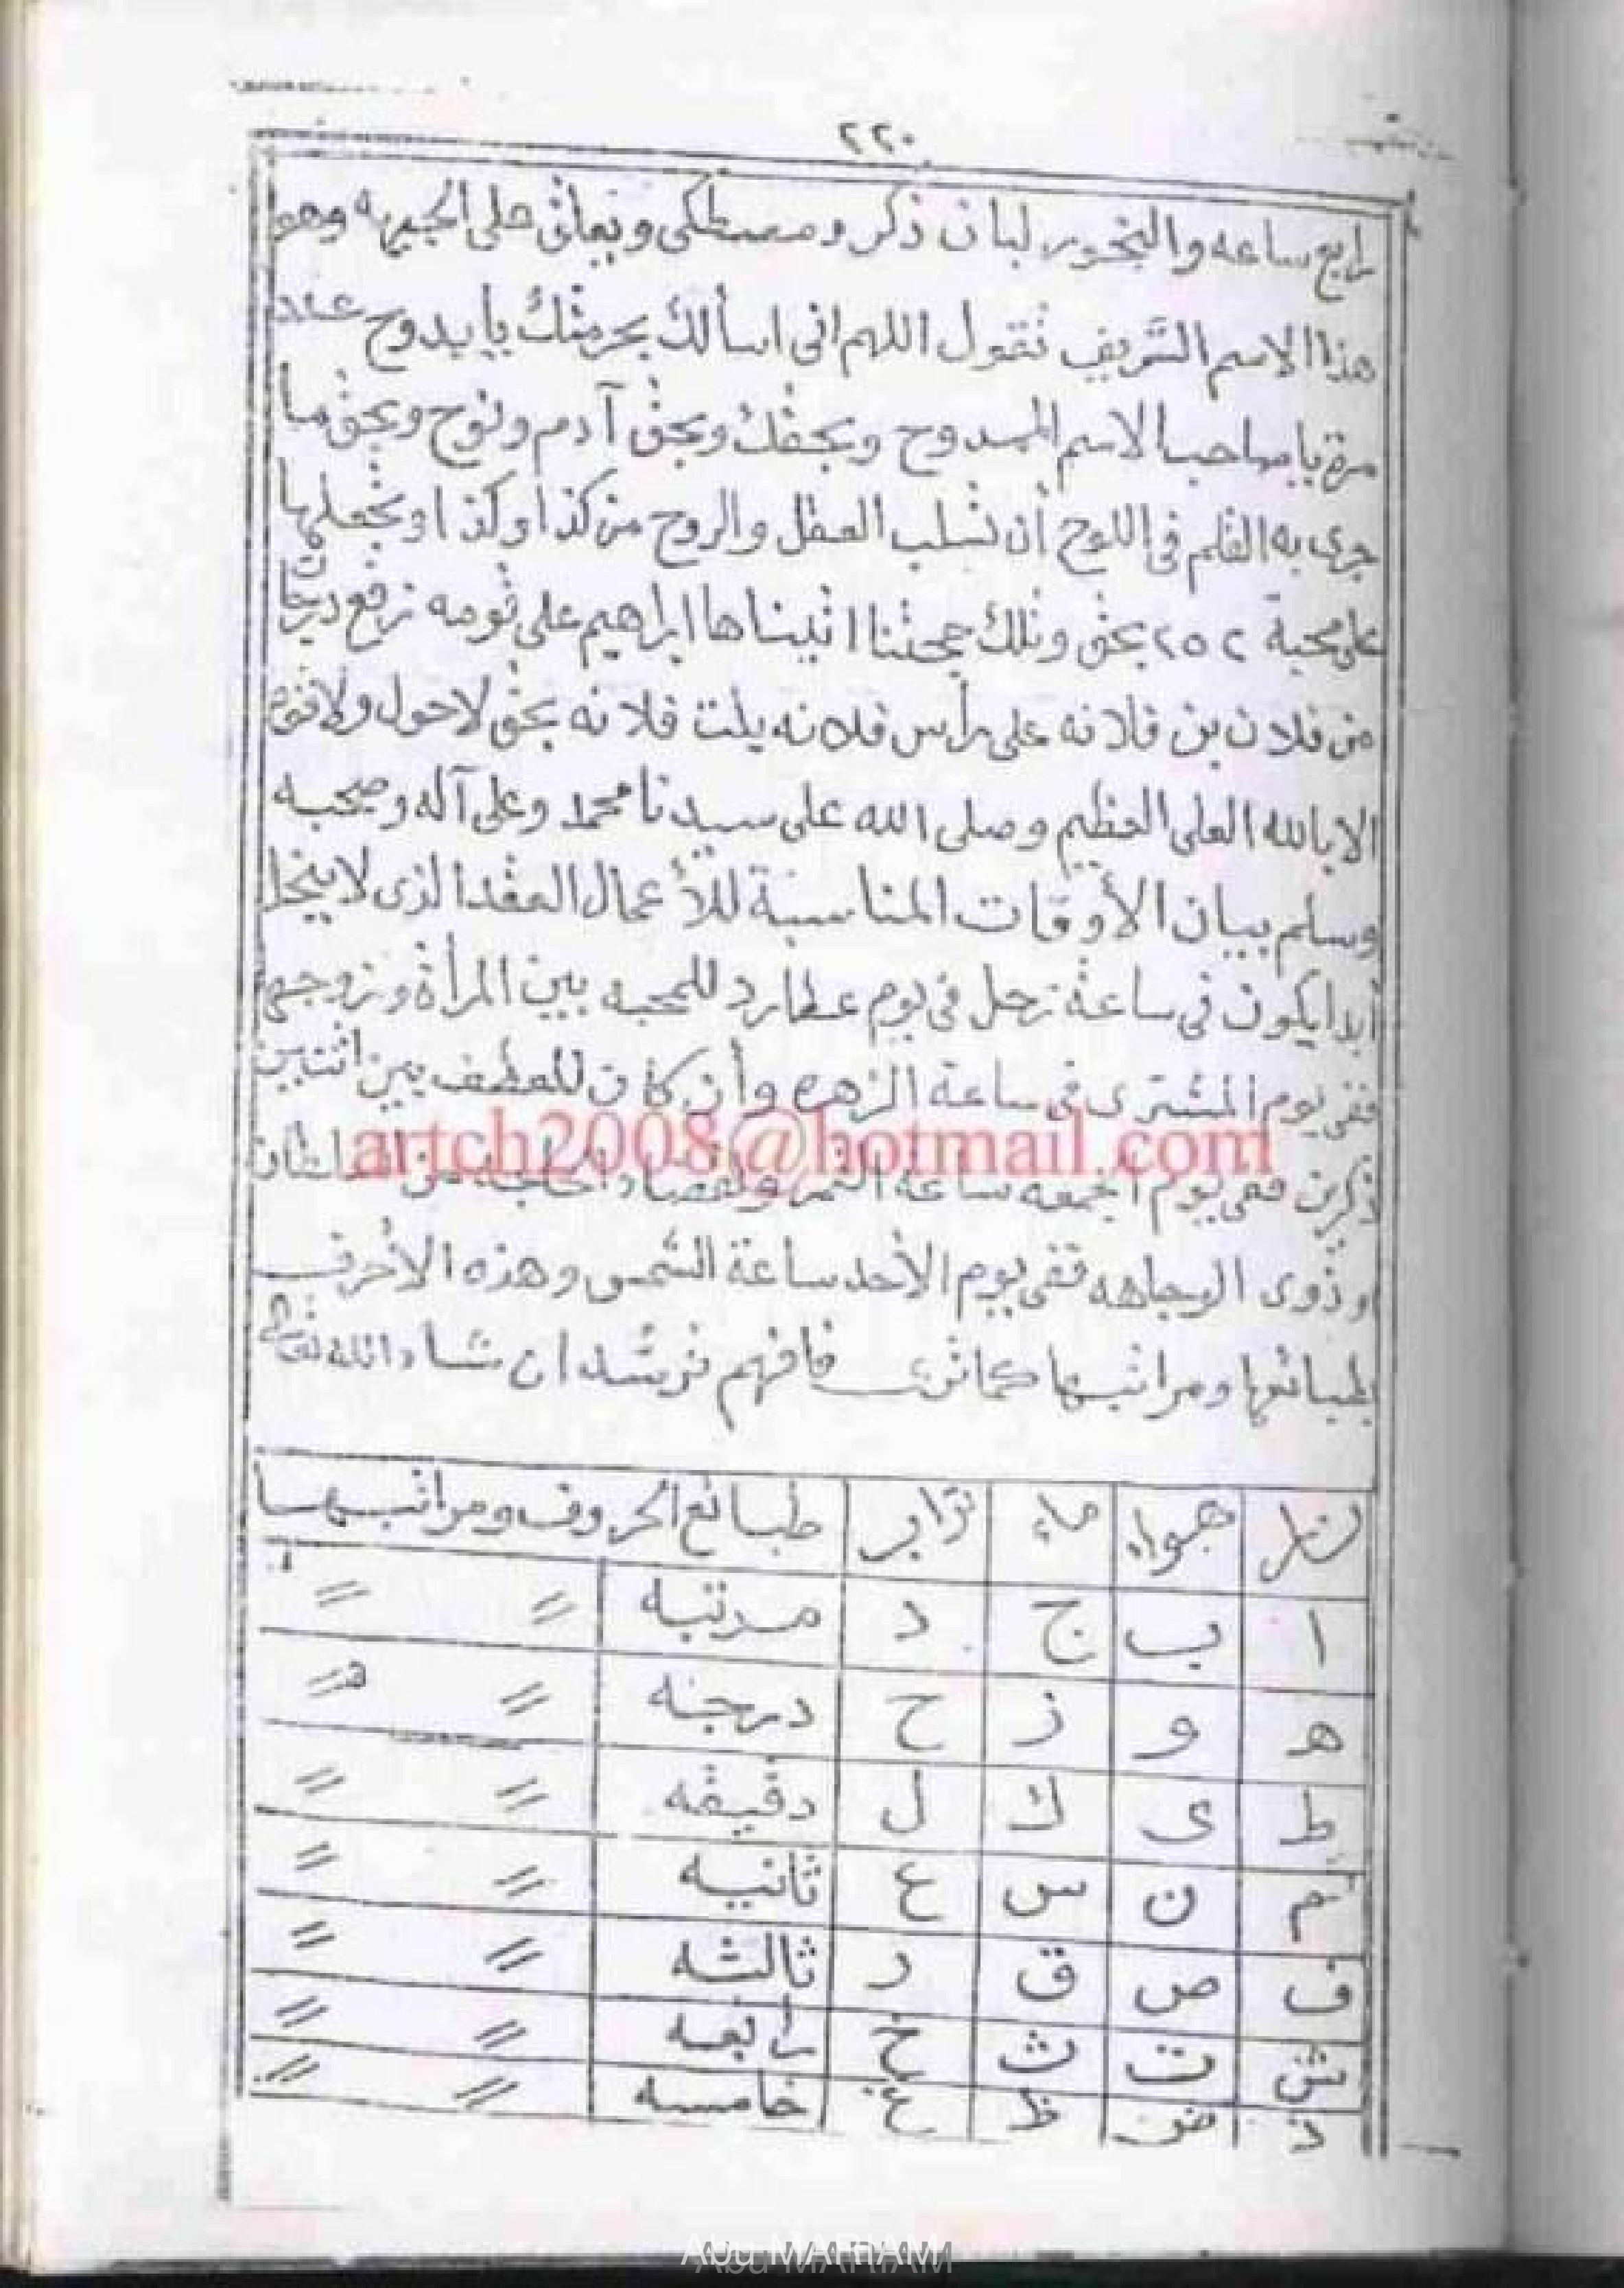 ٢٢٠
رابع ساعه والبخور لبان ذكر ومصطكى وتعلق على الجبهه وهو
هذا الاسم الشريف تقول اللهم انى اسألك بحرمتك يا بدوح عدد
مرة يا صاحب الاسم الممدوح وبحقك وبحق آدم ونوح وبحق ما
جرى به القلم فى اللوح أن تسلب العقل والروح من كذا وكذا وتجعلها
على محبة ٢٥٢ بحق وتلك حجتنا اتيناها ابراهيم على قومه نرفع
من فلان بن فلانه على رأس فلانه بنت فلانه بحق لا حول ولا قوة
الا بالله العلى العظيم وصلى الله على سيدنا محمد وعلى آله وصحبه
وسلم بيان الأوقات المناسبة للأعمال العقد الذى لا ينحل
أبدا يكون فى ساعة زحل فى يوم عطارد للمحبه بين المرأة وزوجها
ففى يوم المشترى فى ساعة الزهره وأن كان للعطف بين اثنين
artch2008@hotmail.com
ذكرين ففى يوم الجمعه ساعة القمر ولقضاء الحاجه من السلطان
او ذوى الوجاهه ففى يوم الأحد ساعة الشمس وهذه الأحرف
بطبائعها ومراتبها كما ترى فافهم ترشد ان شاء الله تعالى
نار هواء ماء تراب طبائع الحروف ومراتبها
ا ب ج د مرتبه〃 〃
ه و ز ح درجه 〃 〃
ط ى ك ل دقيقه 〃 〃
م ن س ع ثانيه 〃 〃
ف ص ق ر ثالثه 〃 〃
ش ت ث خ رابعه 〃 〃
ذ ض ظ غ خامسه 〃 〃
Abu MARIAM